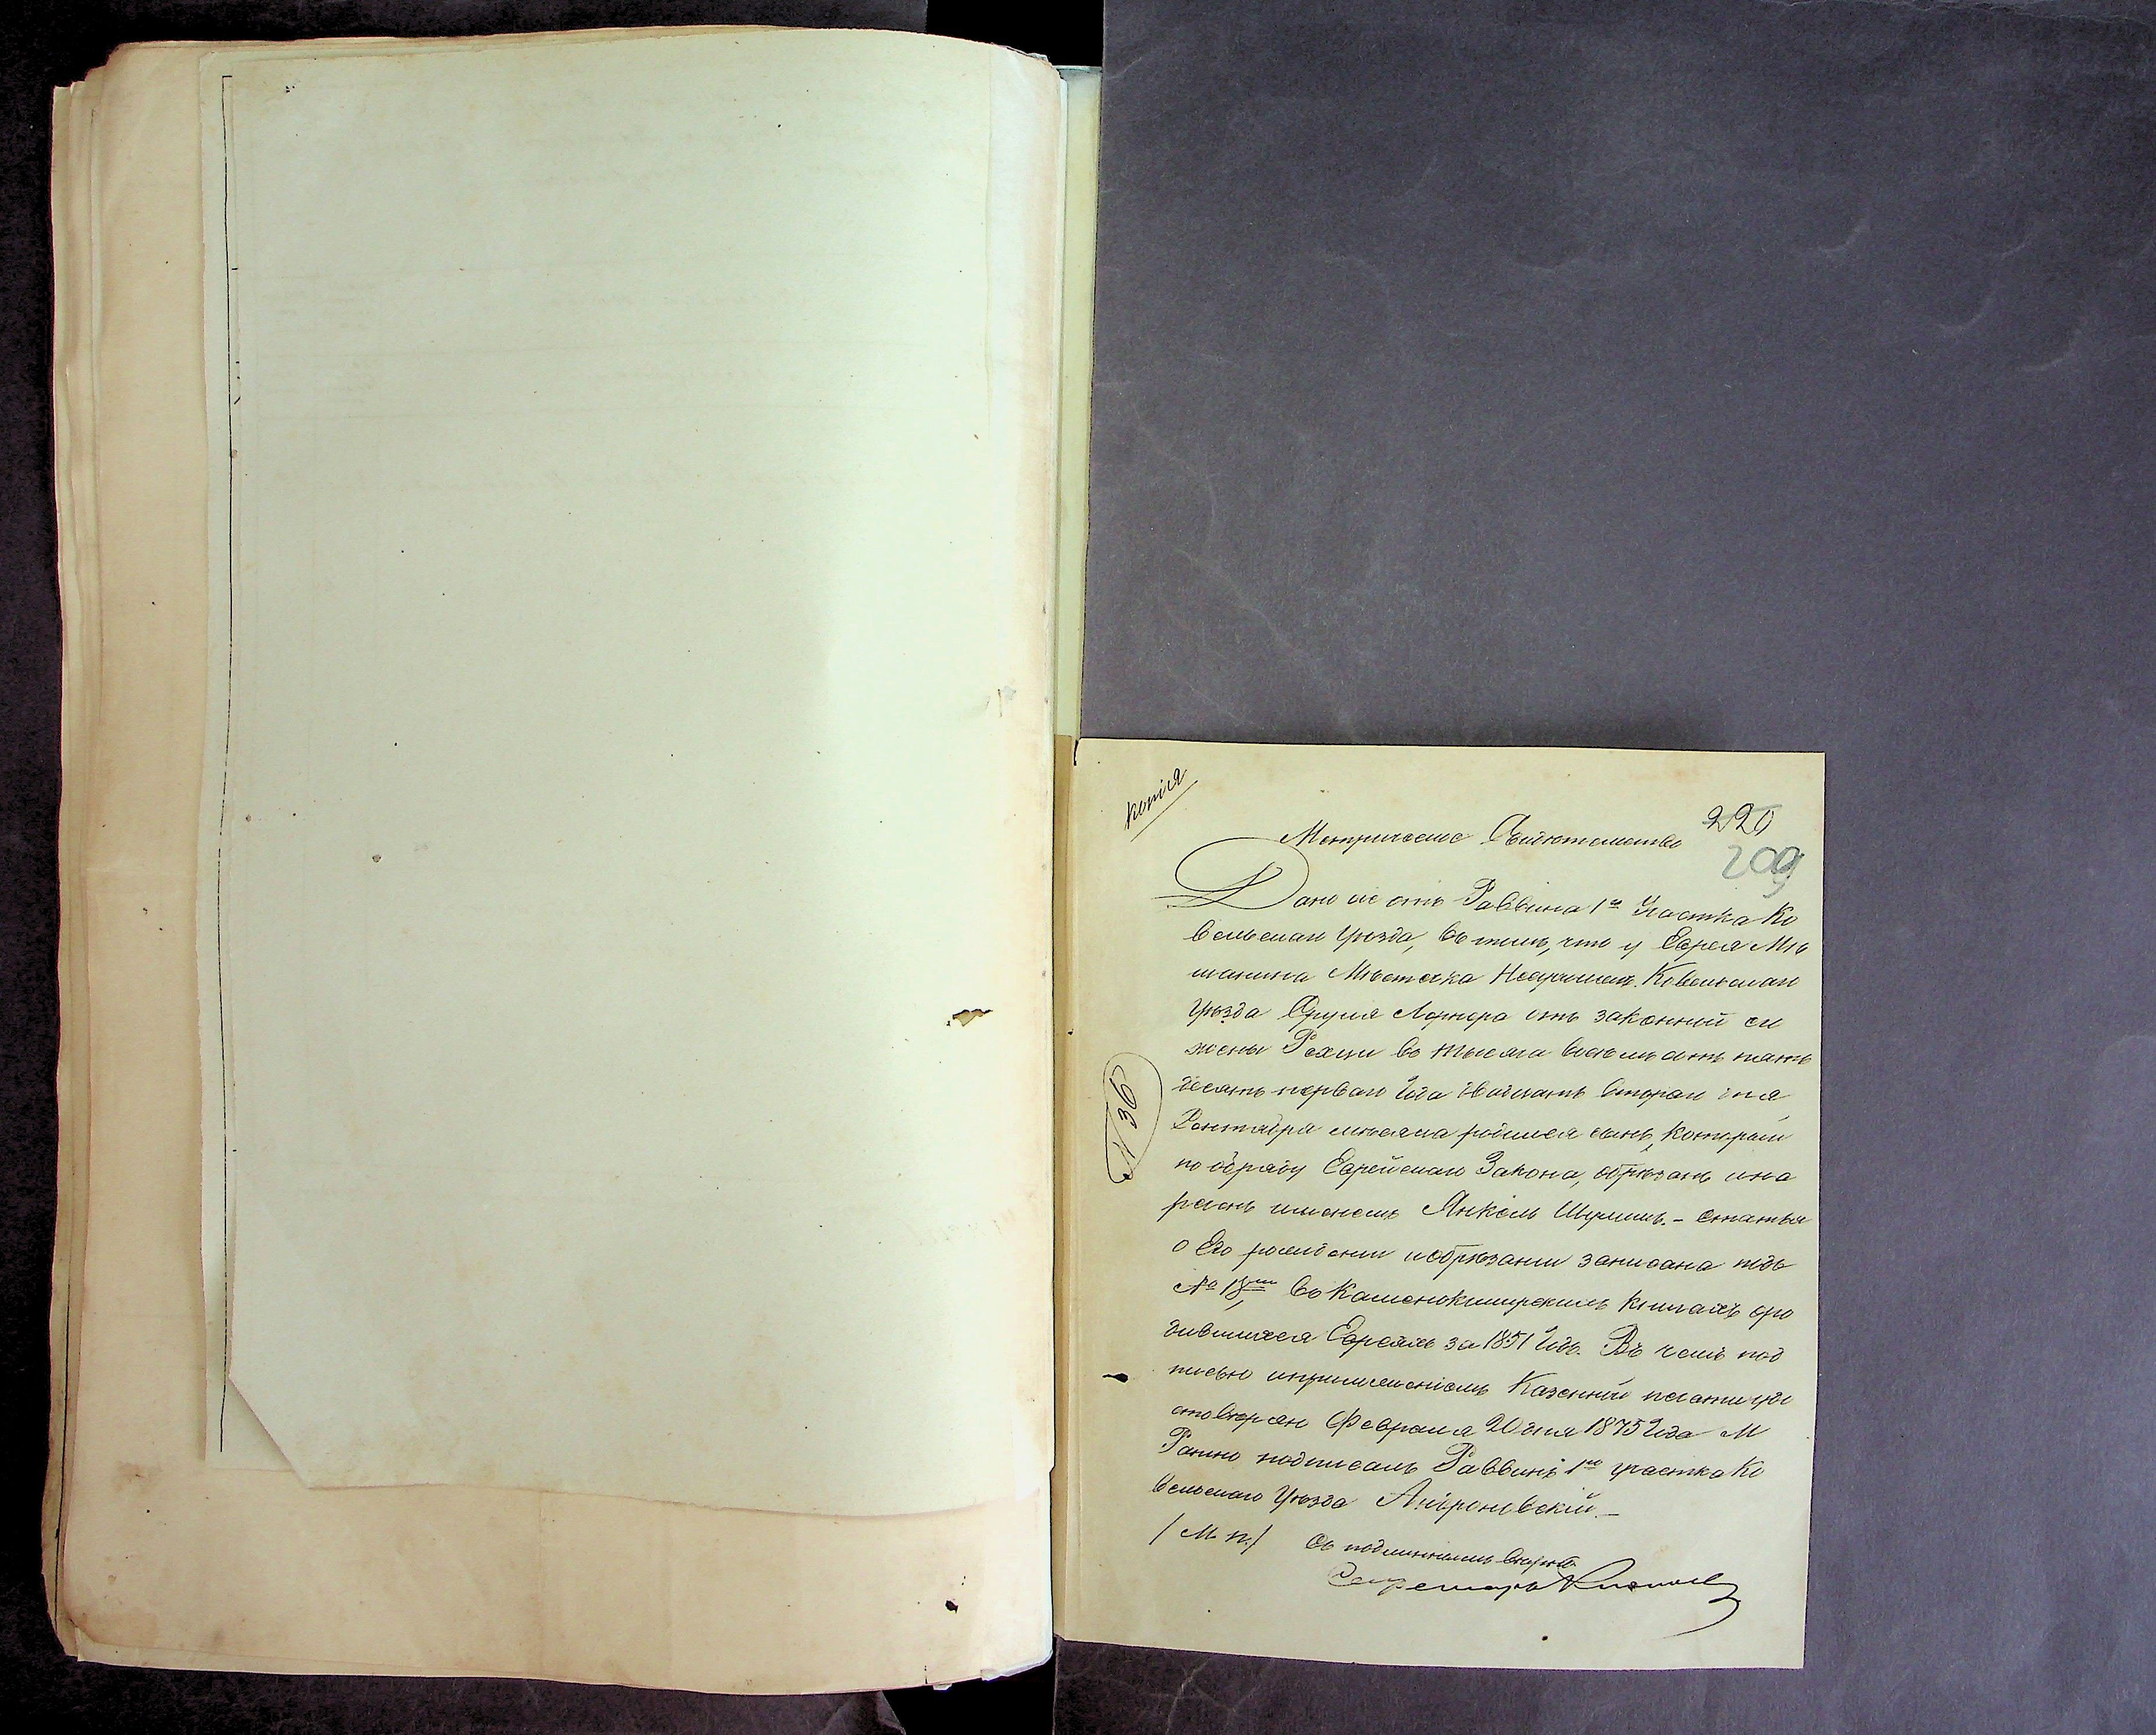 Копія
220
209
Метрическое Свидѣтельство
Дано сіе отъ Раввина 1го Участка Ко
вельскаго Уѣзда, въ томъ, что у Еврея Мѣ
щанина Мѣстечка Ковельскаго
Уѣзда Сруля отъ законной его
жены Рахли въ тысяча восемьсотъ пять
десятъ перваго Года двадцать втораго дня
Сентября мѣсяца родился сынъ, который
по обряду Еврейскаго Закона, обрѣзанъ и на
реченъ именемъ Янкель Шулимъ. – Статья
о Его рожденіи и обрѣзаніи записана подъ
№ въ Каменокаширскихъ книгахъ о ро
дившихся Евреяхъ за 1851 Годъ. Въ чемъ под
писью и приложеніемъ Казенной печати удо
стовѣряю Февраля 20 дня 1875 Года М
Ратно подписалъ Раввинъ 1го участка Ко
вельскаго Уѣзда
/ М. п. / Съ подлиннымъ вѣрно
Секретарь
№ 36